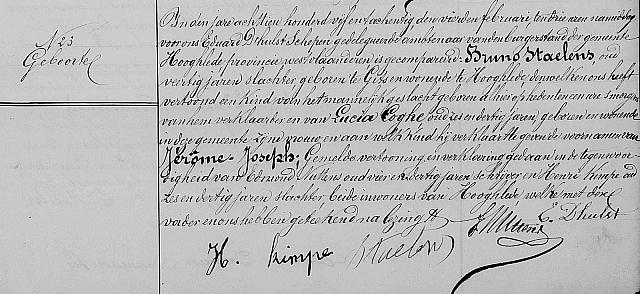 N 23
Geboorte
In den jare achttien honderd vijf en tachentig den vierden februari, ten drie uren namiddag
voor ons Eduard D'hulst Schepen gedelegueerde amptenaar van den burgerstand der gemeente
Hooghlede provincie westvlaanderen is gecompareerd: Bruno Staelens, oud
veertig jaren slachter geboren te Gits en wonende te Hooghlede denwelken ons heeft
vertoond een kind van het mannelijk geslacht geboren alhier op heden ten een ure 's morgens
van hem verklaarder en van Lucia Coghe oud zes en dertig jaren, geboren en wonende
in deze gemeente zijne vrouw, en aan welk kind hij verklaart te geven de voornamen van
Jérôme-Joseph; Gemelde vertooning en verklaering gedaan in de tegenwoor-
digheid van Edmond Nuttens oud vier en dertig jaren Schrijver en Henri Kimpe oud
zes en dertig jaren slachter beide inwoners van Hooghlede welke met dese
vader en ons hebben geteekend na lezing
H. Kimpe Staelens E. Nuttens E. D'hulst